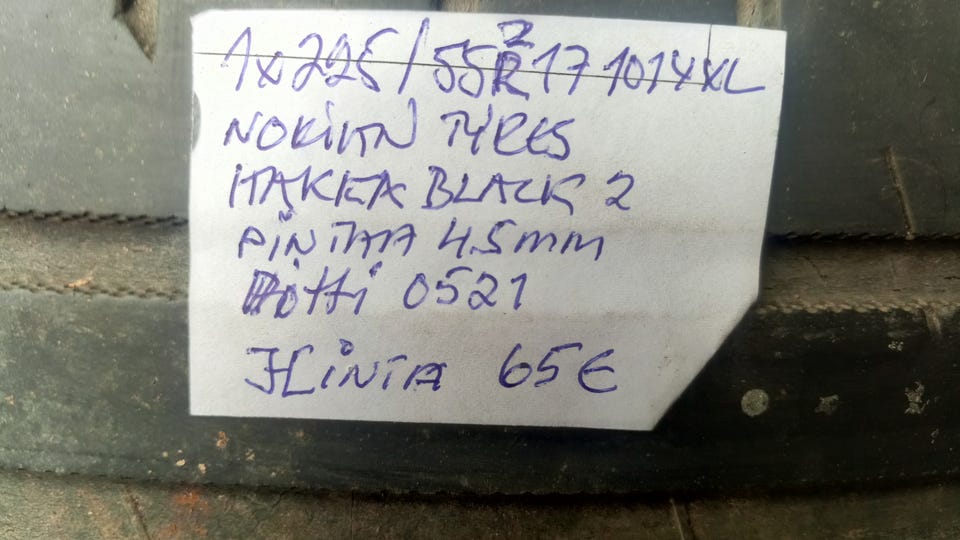 1x225/55ZR17 101YXL
NOKIAN TYRES
HAKKA BLACK 2
PINTAA 4.5mm
Dotti 0521
HINTA 65€